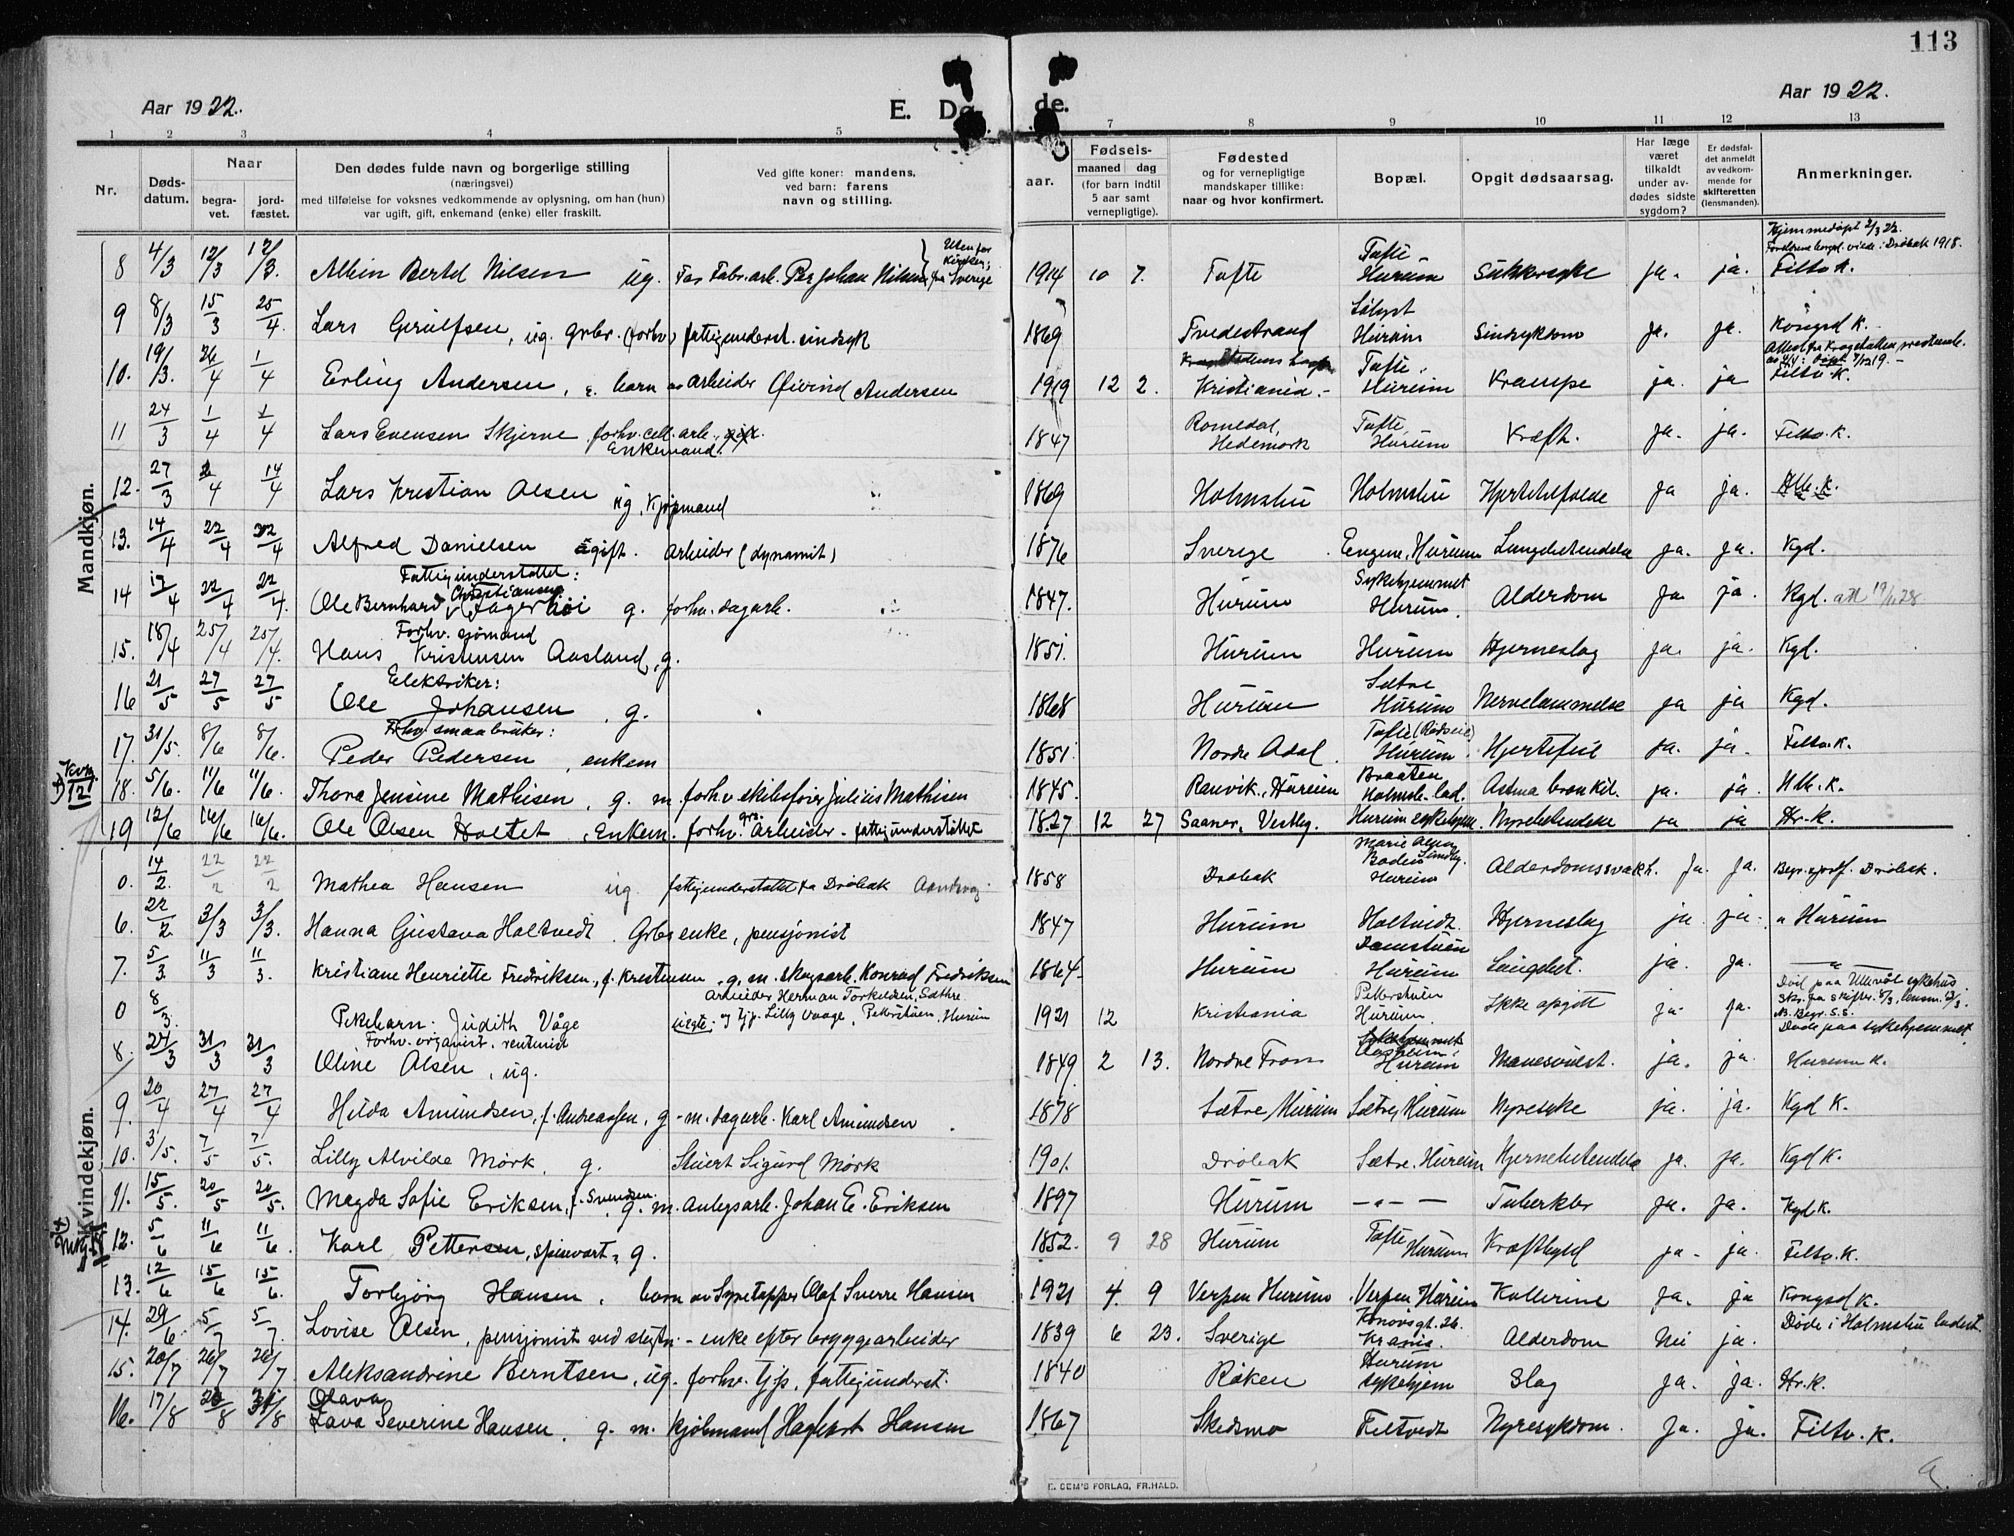 113
Aar 1922.
E. Dø
de.
Aar 1922.
1 2 3 4 5 7 8 9 10 11 12 13
Nr. Døds-datum. Naar begra-vet. jord-fæstet. Den dødes fulde navn og borgerlige stilling (næringsvei) med tilføielse for voksnes vedkommende av oplysning, om han (hun) var ugift, gift, enkemand (enke) eller fraskilt. Ved gifte koner: mandens, ved barn: farens navn og stilling. aar. Fødsels- maaned dag (for barn indtil 5 aar samt vernepligtige). Fødested og for vernepligtige mandskaper tillike: naar og hvor konfirmert. Bopæl. Opgit dødsaarsag. Har læge været tilkaldt under av-dødes sidste sygdom? Er dødsfal-det anmeldt av vedkom-mende for skifteretten (lensmanden). Anmerkninger.
Mandkjøn.
8 4/3 12/3 12/3. Albin Bertel Nilsen ug. Far Fabr. arb. Per Johan Nilsen fra Sverige Utenfor Kirken; 1914 10 7. Tofte Tofte Hurum Sukkersyke ja. ja. Hjemmedøpt Filtv. K.
9 8/3 15/3 25/4. Lars Gerulfsen, ug. grbr. (forhv) fattigunderst. sindsyk 1869 Tvedestrand Hurum Sindsykdom ja. ja. Kongsd K.
10. 19/3. 26/4 1/4 Erling Andersen, barn av arbeider Øivind Andersen 1919 12 2. Kristiania. Tofte, Hurum Krampe ja. ja Filtv. K.
11 24/3 1/4 1/4 Lars Evensen Skjerve, forhv. cell. arb. gift. Enkemand. 1847 Romedal, Hedemark Tofte, Hurum Kræft. ja. ja. Filtv. K.
12. 27/3 4 14/4 Lars Kristian Olsen ug, Kjøpmand 1869 Holmsbu Holmsbu Hjerteltfælde ja ja. Hlb. K.
13. 14/4 22/4 22/4 Alfred Danielsen gift. arbeider (dynamit) 1876 Sverige Engene, Hurum Lungebetendelse ja. ja. Kgd.
14 17/4 22/4 22/4. Fattigunderstøttet: Ole Bernhard Christiansen (Fagerhøi g. forhv. dagarb. 1847. Hurum Sykehjemmet Hurum. Alderdom ja. ja. Kgd.
15. 18/4 25/4 25/4. Forhv. sjømand Hans Kristensen Aasland, g. 1851. Hurum Hurum Hjerneslag ja. ja. Kgd.
16 21/5 27/5 27/5 Elektriker: Ole Johansen, g. 1868 Hurum Sætre Hurum Nervelammelse ja ja Kgd.
17. 31/5. 8/6 8/6. Forhv. smaabruker: Peder Pedersen, enkem 1851. Nordre Aadal. Tofte Hurum. Hjertefeil ja. ja. Filtv. K.
Kvk. 12
18. 5/6. 11/6 11/6. Thora Jensine Mathisen, g. m. forhv skibsfører Julius Mathisen 1845. Ranvik, Hurum Braaten Holmsb. lad. Astma bronkit. ja. ja. Hlb. K.
19 12/6 16/6 16/6. Ole Olsen Holtet, Enkem. forhv. grb. Arbeider - fattigunderstøttet 1827 12 27 Saaner, Vestby. Hurum sykehjem Nyrebetendelse ja ja Hr. K.
Kvindekjøn.
0. 14/2. 22/2 22/2 Mathea Hansen ug. fattigunderstøttet fra Drøbak Aandssvag 1858 Drøbak Hurum Alderdomssvakh. ja. ja. Begr. og jordf. Drøbak.
6. 22/2 3/3 3/3. Hanna Gustava Holtvedt. Grbr enke, pensjonist 1847 Hurum Holtvedt. Hjerneslag ja ja. " Hurum
7. 5/3 11/3 11/3. Kristiane Henriette Fredriksen, f. Kristensen, g. m. skogsarb. Konrad Fredriksen 1864. Hurum Hurum Lungebet. ja. ja. "
0 8/3. Pikebarn: Judith Våge uegte: Arbeider Herman Torkelsen, Sæthre og tjp. Lilly Vaage, Petterstuen, Hurum 1921 12 Kristiania Petterstuen Hurum. Ikke opgitt ja. ja. Død paa Ullevål sykehus.
8. 24/3 31/3 31/3 Forhv. organist, rentenist Oline Olsen, ug. 1849 2 13. Nordre Fron Hurum Mavesvulst. ja. ja. Døde paa sykehjemmet. Hurum K.
9. 20/4 27/4 27/4 Hilda Amundsen, f. Andreassen, g - m. dagarb. Karl Amundsen 1878 Sætre, Hurum Sætre, Hurum Nyresyke ja. ja. Kgd K.
10. 3/5. 7/5 7/5. Lilly Alvilde Mørk, g. Stuert Sigurd Mørk 1901. Drøbak Sætre, Hurum Hjernebetendelse ja. ja. Kgd K.
11. 15/5. 20/5 20/5. Magda Sofie Eriksen, f. Svendsen. g. m. Anlegsarb. Johan E. Eriksen 1897 Hurum - " - Tuberkler ja. ja. Kgd K.
12. 5/6 11/6 11/6. Karl Pettersen, g. 1852. 9 28 Hurum Tofte Hurum Kræftbyld ja - ja. Filtv. K.
13. 12/6 15/6 15/6. Torbjørg Hansen, barn av Syretapper Olaf Sverre Hansen 1921 4. 9 Verpen Hurum. Verpen Hurum Kollerine ja. ja Kongsd K.
14. 29/6. 5/7 5/7. Lovise Olsen, pensjonist - enke efter bryggearbeider 1839 6 23. Sverige Alderdom Nei ja. Døde i Holmsbu
15. 20/7 26/7 26/7 Aleksandrine Berntsen, ug. forhv. tjp. fattigunderst. 1840 Røken Hurum sykehjem Slag ja. ja. Hr. K.
16. 17/8 23/8 31/8 Olava Lava Severine Hansen, g. m. kjøbmand Hagbart Hansen 1867 Skedsmo Filtvedt Nyresykdom. ja. ja. Filtv. K.
E. SEM'S FORLAG, FR.HALD.